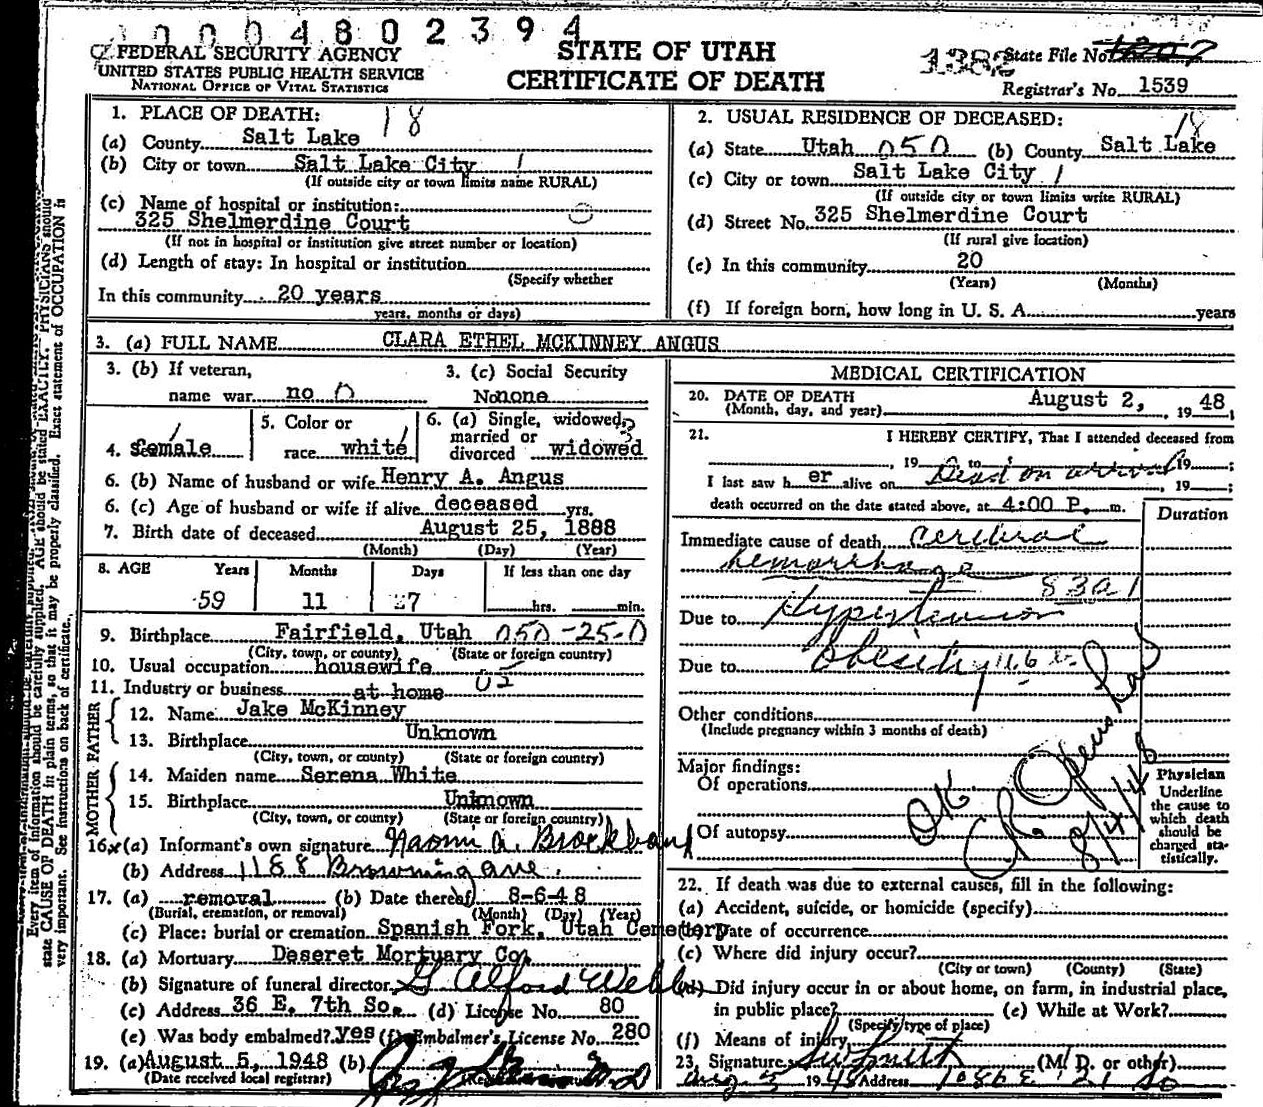 00004802394
FEDERAL SECURITY AGENCY
UNITED STATES PUBLIC HEALTH SERVICE
NATIONAL OFFICE OF VITAL STATISTICS
STATE OF UTAH
CERTIFICATE OF DEATH
1382 State File No.
Registrar's No. 1539
1. PLACE OF DEATH: 18
(a) County Salt Lake
(b) City or town Salt Lake City 1
(If outside city or town limits name RURAL)
(c) Name of hospital or institution:
325 Shelmerdine Court
(If not in hospital or institution give street number or location)
(d) Length of stay: In hospital or institution
(Specify whether
In this community 20 years
years, months or days)
2. USUAL RESIDENCE OF DECEASED: 18
(a) State Utah 050 (b) County Salt Lake
(c) City or town Salt Lake City 1
(If outside city or town limits write RURAL)
(d) Street No. 325 Shelmerdine Court
(If rural give location)
(e) In this community 20
(Years) (Months)
(f) If foreign born, how long in U. S. A. years
3. (a) FULL NAME CLARA ETHEL MCKINNEY ANGUS
3. (b) If veteran, name war no 0
3. (c) Social Security No none
4. Sex female 1
5. Color or race white 1
6. (a) Single, widowed, married or divorced widowed 3
6. (b) Name of husband or wife Henry A. Angus
6. (c) Age of husband or wife if alive deceased yrs.
7. Birth date of deceased August 25, 1888
(Month) (Day) (Year)
8. AGE Years Months Days If less than one day
59 11 27 hrs. min.
9. Birthplace Fairfield, Utah 050-25-0
(City, town, or county) (State or foreign country)
10. Usual occupation housewife
11. Industry or business at home
FATHER
12. Name Jake McKinney
13. Birthplace Unknown
(City, town, or county) (State or foreign country)
MOTHER
14. Maiden name Serena White
15. Birthplace Unknown
(City, town, or county) (State or foreign country)
16. (a) Informant's own signature Naomi A. Brockbank
(b) Address 1188 Browning ave.
17. (a) removal (b) Date thereof 8-6-48
(Burial, cremation, or removal) (Month) (Day) (Year)
(c) Place: burial or cremation Spanish Fork, Utah Cemetery
18. (a) Mortuary Deseret Mortuary Co.
(b) Signature of funeral director
(c) Address 36 E. 7th So. (d) License No. 80
(e) Was body embalmed? yes (f) Embalmer's License No. 280
19. (a) August 5, 1948 (b)
(Date received local registrar)
MEDICAL CERTIFICATION
20. DATE OF DEATH August 2, 1948
(Month, day, and year)
21. I HEREBY CERTIFY, That I attended deceased from
, 19 to 19 ;
Dead on arrival
I last saw her alive on , 19 ;
death occurred on the date stated above, at 4:00 P. m.
Duration
Immediate cause of death cerebral
hemorrhage
83a1
Due to Hypertension
Due to Obesity
Other conditions
(Include pregnancy within 3 months of death)
Major findings:
Of operations
Of autopsy
OK
8/4/48
Physician
Underline
the cause to
which death
should be
charged sta-
tistically.
22. If death was due to external causes, fill in the following:
(a) Accident, suicide, or homicide (specify)
(b) Date of occurrence
(c) Where did injury occur?
(City or town) (County) (State)
(d) Did injury occur in or about home, on farm, in industrial place,
in public place? (e) While at Work?
(Specify type of place)
(f) Means of injury
23. Signature (M. D. or other)
Aug 3 1948 Address